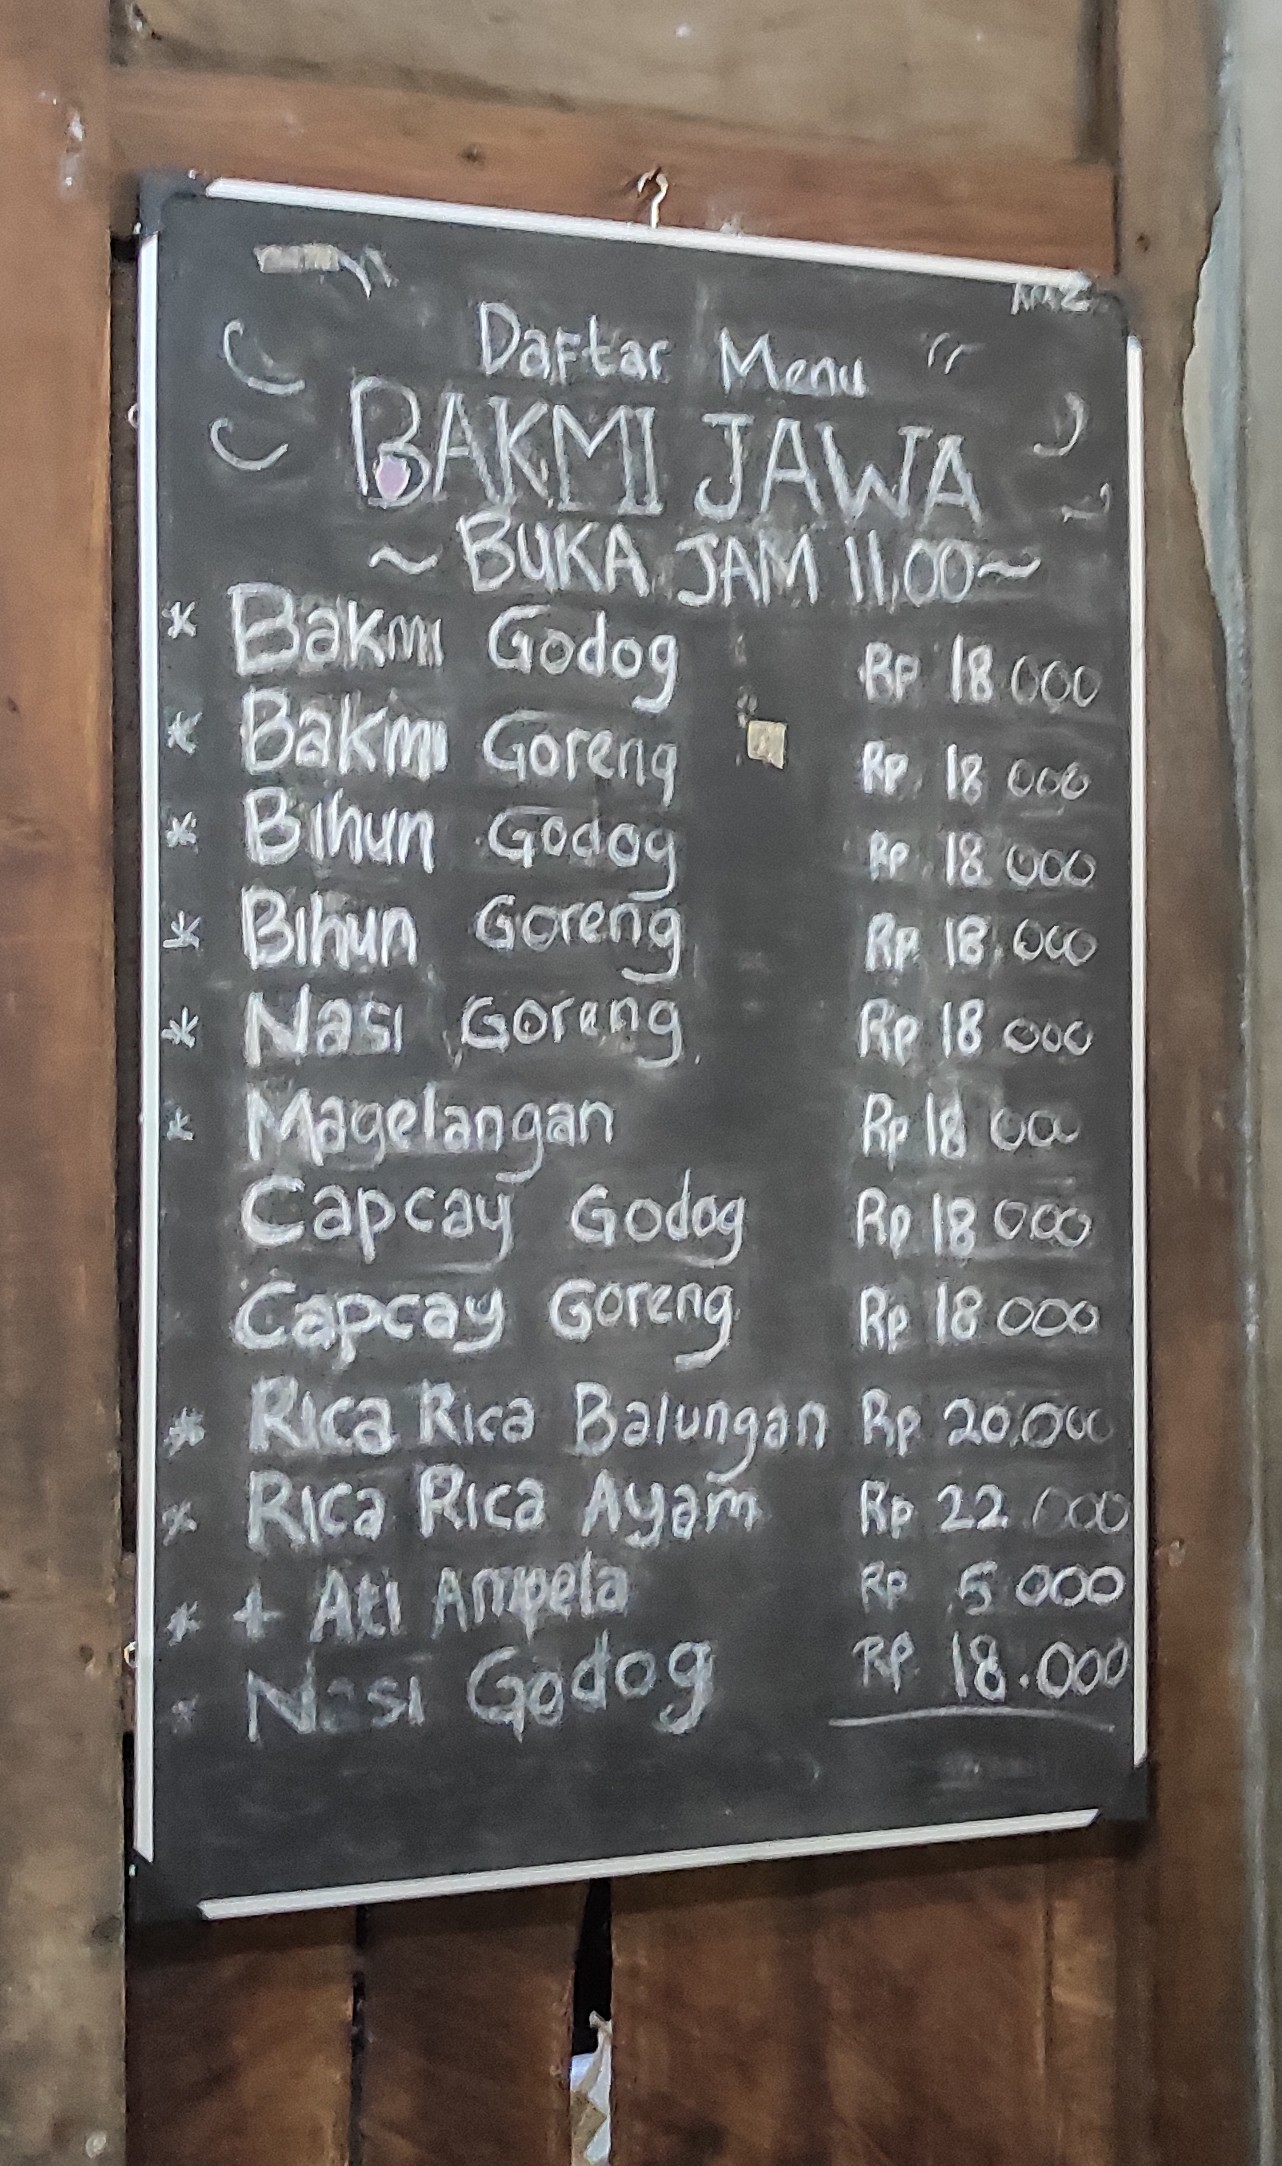 Daftar Menu
BAKMI JAWA
~ BUKA JAM 11.00 ~
* Bakmi Godog Rp 18 000
* Bakmi Goreng Rp 18 000
* Bihun Godog Rp 18 000
* Bihun Goreng Rp 18.000
* Nasi Goreng Rp 18 000
* Magelangan Rp 18 000
Capcay Godog Rp 18 000
Capcay Goreng Rp 18 000
* Rica Rica Balungan Rp 20.000
* Rica Rica Ayam Rp 22 000
* + Ati Ampela Rp 5 000
* Nasi Godog Rp 18.000